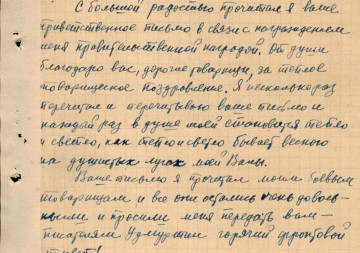 С большой радостью прочитал я ваше
приветственное письмо в связи с награждением
меня правительственной наградой. От души
благодарю вас, дорогие товарищи, за теплое
товарищеское поздравление. Я несколько раз
перечитал и перечитываю ваше письмо и
каждый раз в душе моей становится тепло
и светло, как тепло и светло бывает весною
на душистых лугах моей Валы.
Ваше письмо я прочитал моим боевым
товарищам и все они остались очень доволь-
ными и просили меня передать вам-
писателям Удмуртии горячий фронтовой
привет!